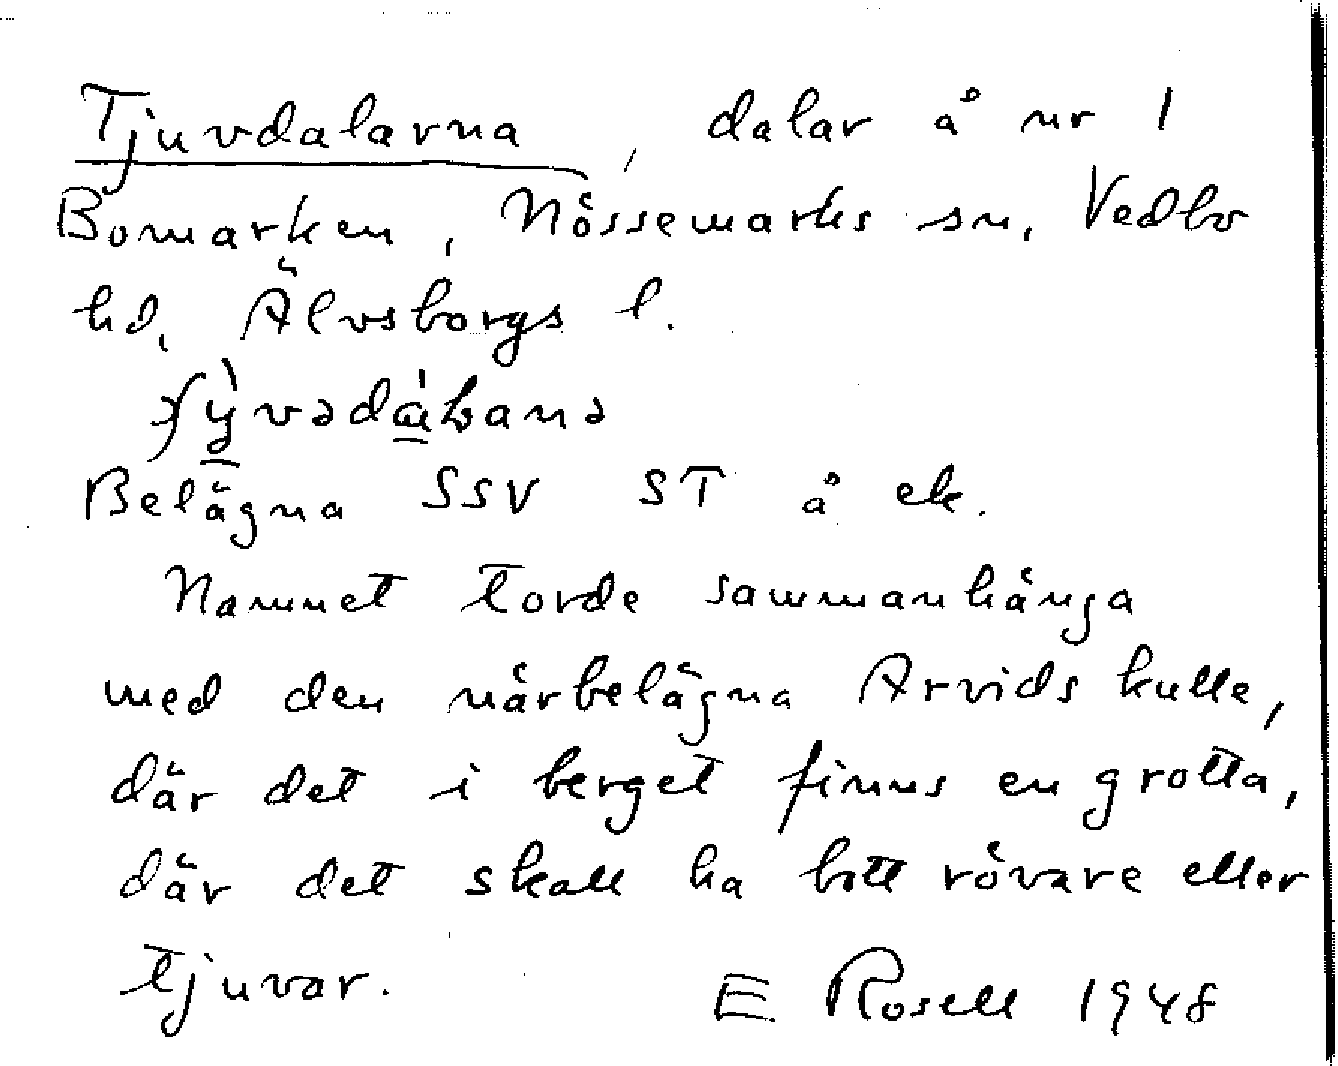 Tjuvdalarna, dalar å nr 1
Bomarken, Nössemarks sn, Vedbo
hd, Älvsborgs l.
Belägna SSV ST å ek.
Namnet torde sammanhänga
med den närbelägna Arvids kulle,
där det i berget finns en grotta,
där det skall ha bott rövare eller
tjuvar. E Rosell 1948